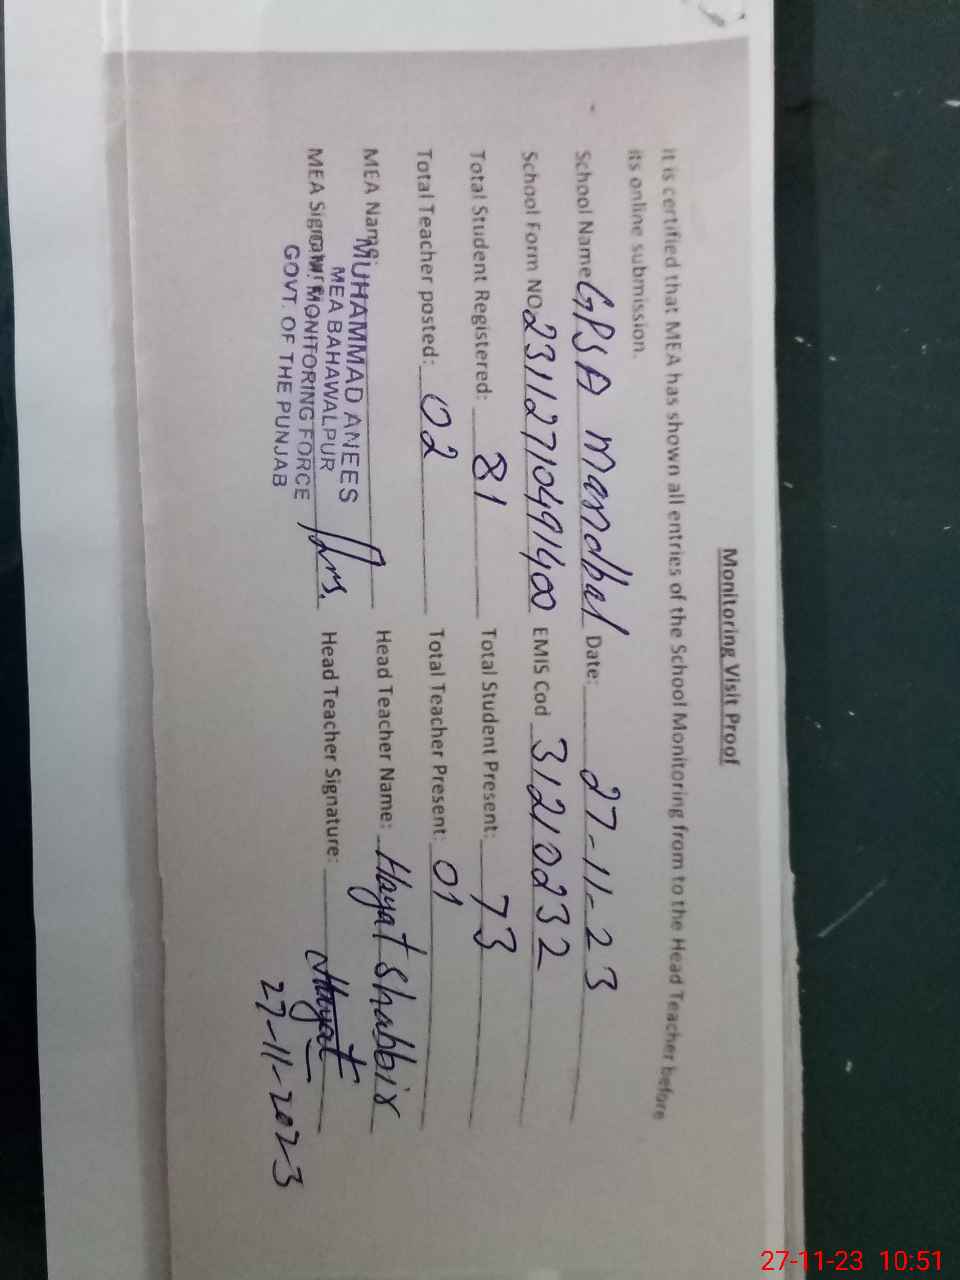 Monitoring Visit Proof
It is certified that MEA has shown all entries of the School Monitoring from to the Head Teacher before
its online submission.
School Name GPS A Mandhal Date: 27-11-23
School Form NO. 23112710491400 EMIS Cod 31210232
Total Student Registered: 81 Total Student Present: 73
Total Teacher posted: 02 Total Teacher Present: 01
MEA Name: Head Teacher Name: Hayat Shabbir
MUHAMMAD ANEES
MEA BAHAWALPUR
MEA Signature: Head Teacher Signature: Hayat
MONITORING FORCE
GOVT. OF THE PUNJAB
27-11-2023
27-11-23 10:51